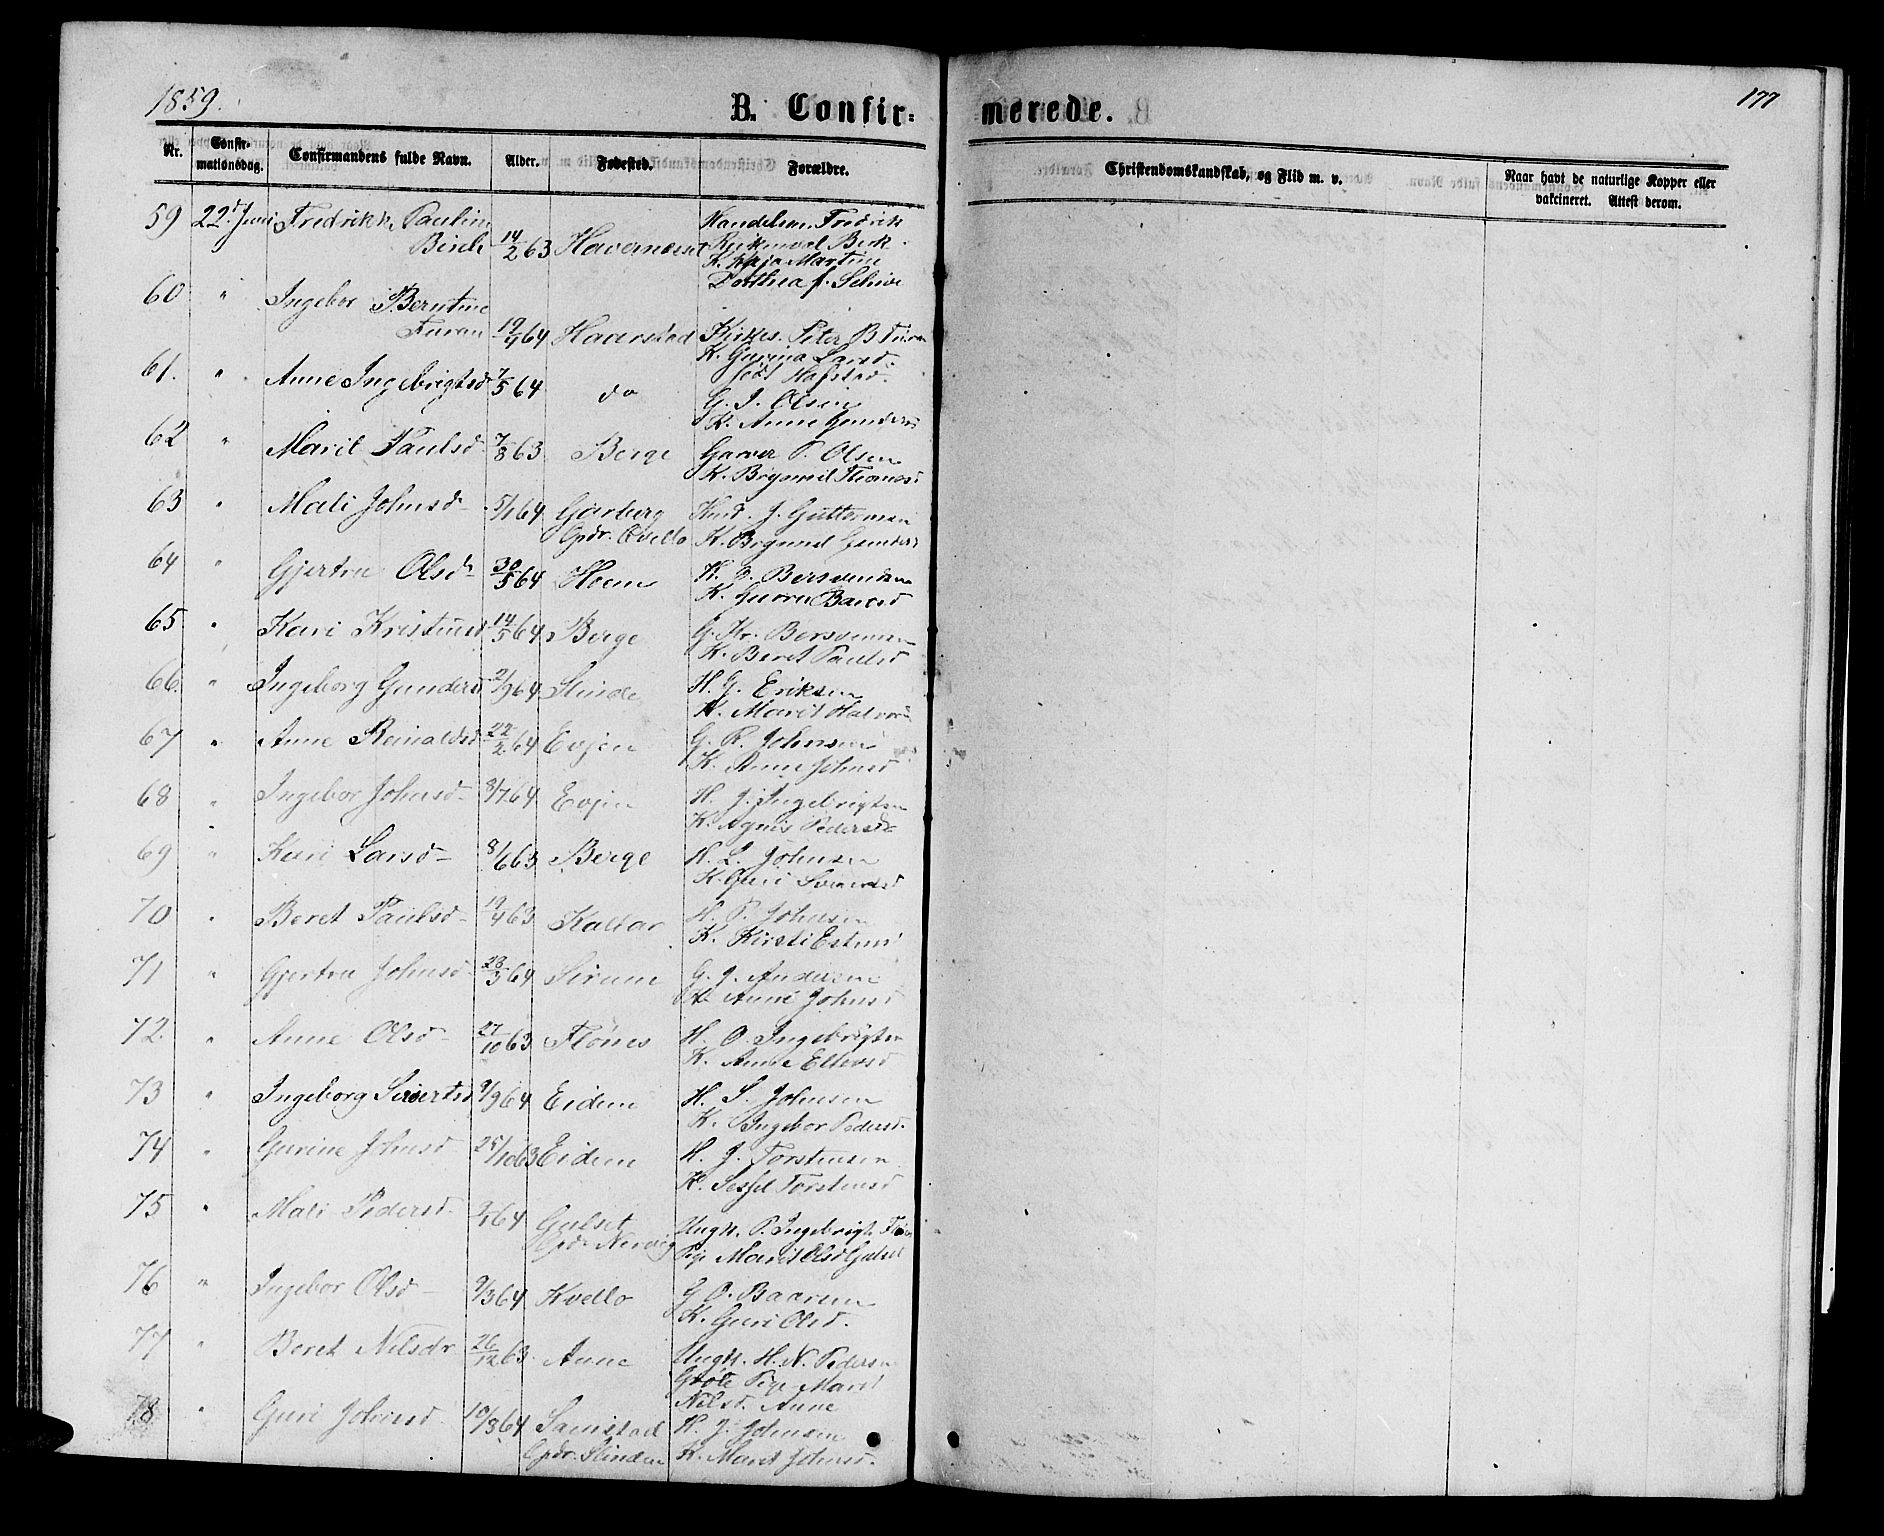 1859.
B. Confir=
merede.
177
Nr.
Confir-
mationsdag.
Confirmandens fulde Navn.
Alder.
Fødested.
Forældre.
Christendomskundskab, og Flid m. v.
Naar havt de naturlige Kopper eller
vakcineret. Attest derom.
59 22d Juni Fredrikke Pauline
Birch 14/2 63
Fredrik
Martine
Dorthea f.
60 " Ingebor Berntine
Furan 19/4 64 Haarstad Peter B Furan
K. Gurina Larsd.
født Hafstad.
61. " Anne Ingebrigtsd 7/5 64 do
G. I. Olsen
K. Anne Gunders
62 " Marit Paulsd 7/8 63 Berge Garver P. Olsen
K. Thomasd
63 " Mali Johnsd 5/1 64 Garberg J. Guttormsen
Opdr. Qvello K. Gunders
64 " Gjertru Olsd 30/5 64 Hoem H. O. Bersvendsen
K. Baard
65 " Kari Kristensd 14/5 64 Berge G. Kr. Bersvensen
K. Beret Paulsd
66. " Ingeborg Gundersd 2/9 64 Slinde H. G. Eriksen
K. Marit Halvors
67 " Anne Reinaldsd 22/2 64 Evjen G. R. Johnsen
K. Anne Johnsd
68 " Ingebor Johnsd 8/7 64 Evjen H. J. Ingebrigtsen
K. Agnis Pedersd
69 " Kari Larsd 8/6 63 Berge H. L. Johnsen
K. Guri
70 " Beret Paulsd 19/4 63 Kallar H. P. Johnsen
K. Kirsti Estens
71 " Gjertru Johnsd 28/3 64 G. J. Andersen
K. Anne Johnsd
72. " Anne Olsd 27/10 63 Flönes H. O. Ingebrigtsen
K. Anne Ellevsd
73 " Ingeborg Sivertsd 9/9 64 Eidem H. S. Johnsen
K. Ingebor Pedersd.
74 " Gurine Johnsd 25/10 63 Eidem H. J. Torstensen
K. Torstensd
75 " Mali Pedersd 2/1 64 Gulset Ungk. P. Ingebrigts.
Opdr. Nervig Pige Marit Olsd Gulset
76 " Ingebor Olsd 9/3 64 Kvello G O. Baarsen
K. Guri Olsd.
77 " Beret Nilsdr 26/12 63 Aune Ungk. H. N. Pedersen
Pige Marit
Nilsd. Aune
78 " Guri Johnsd 10/8 64 Samstad H. J. Johnsen
Opdr. Slinden K. Marit Johnsd.